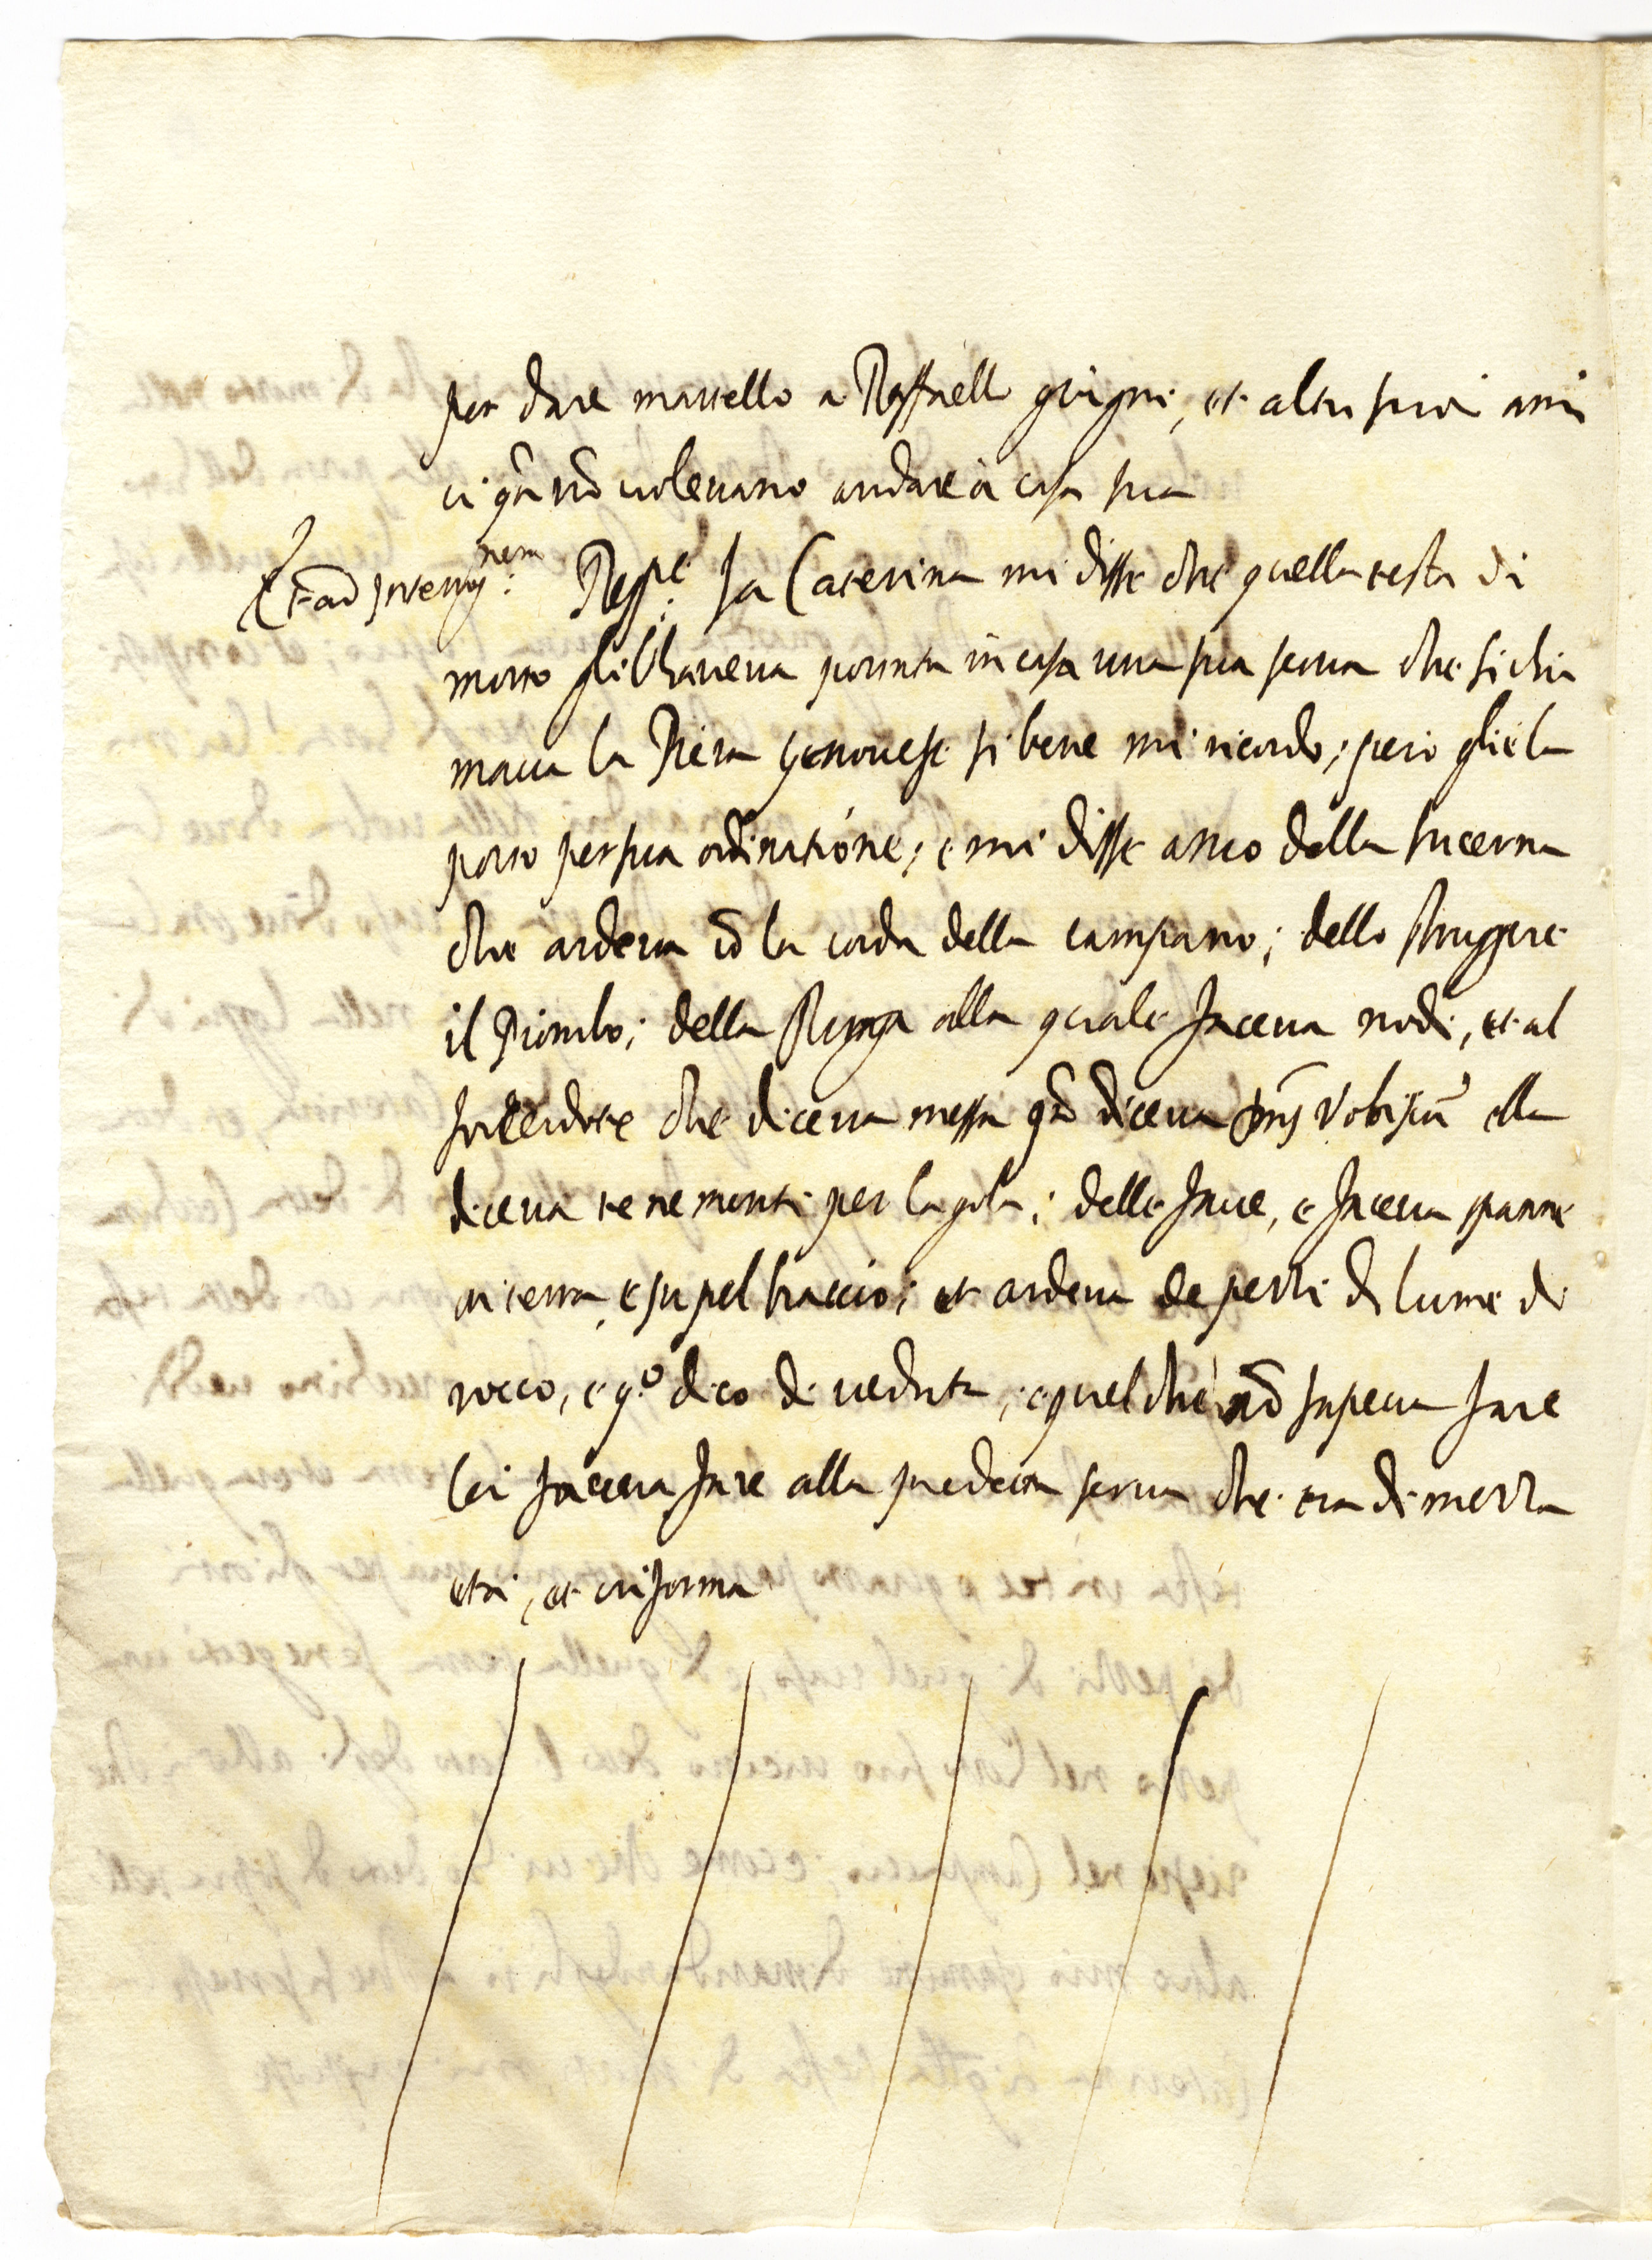 per dare martello a Raffaello grigni, et altri suoi ami
ci qñ nõ uoleuano andare à casa sua
Et ad Interrog:nem Resp:t La Caterina mi disse che quella testa di
morto gli l'haueua portata in casa una sua serua che si chia
maua la Piera genouese si bene mi ricordo, però gliela
portò per sua ordinatione; e mi disse anco della lucerna
che ardeua cõ la corda della campana; dello struggere
il Piombo; della stringa alla quale faceua nodi, et al
sacerdote che diceua messa qñ diceua Dñs Vobiscũ ella
diceua te ne menti per la gola; delle faue, e faceua spanne
in terra, e su pel braccio; et ardeua de pezzi di lume di
rocco, e q.o dico di ueduta, e quel che nõ sapeua fare
lei faceua fare alla predetta serua che era di mezza
età, et in forma